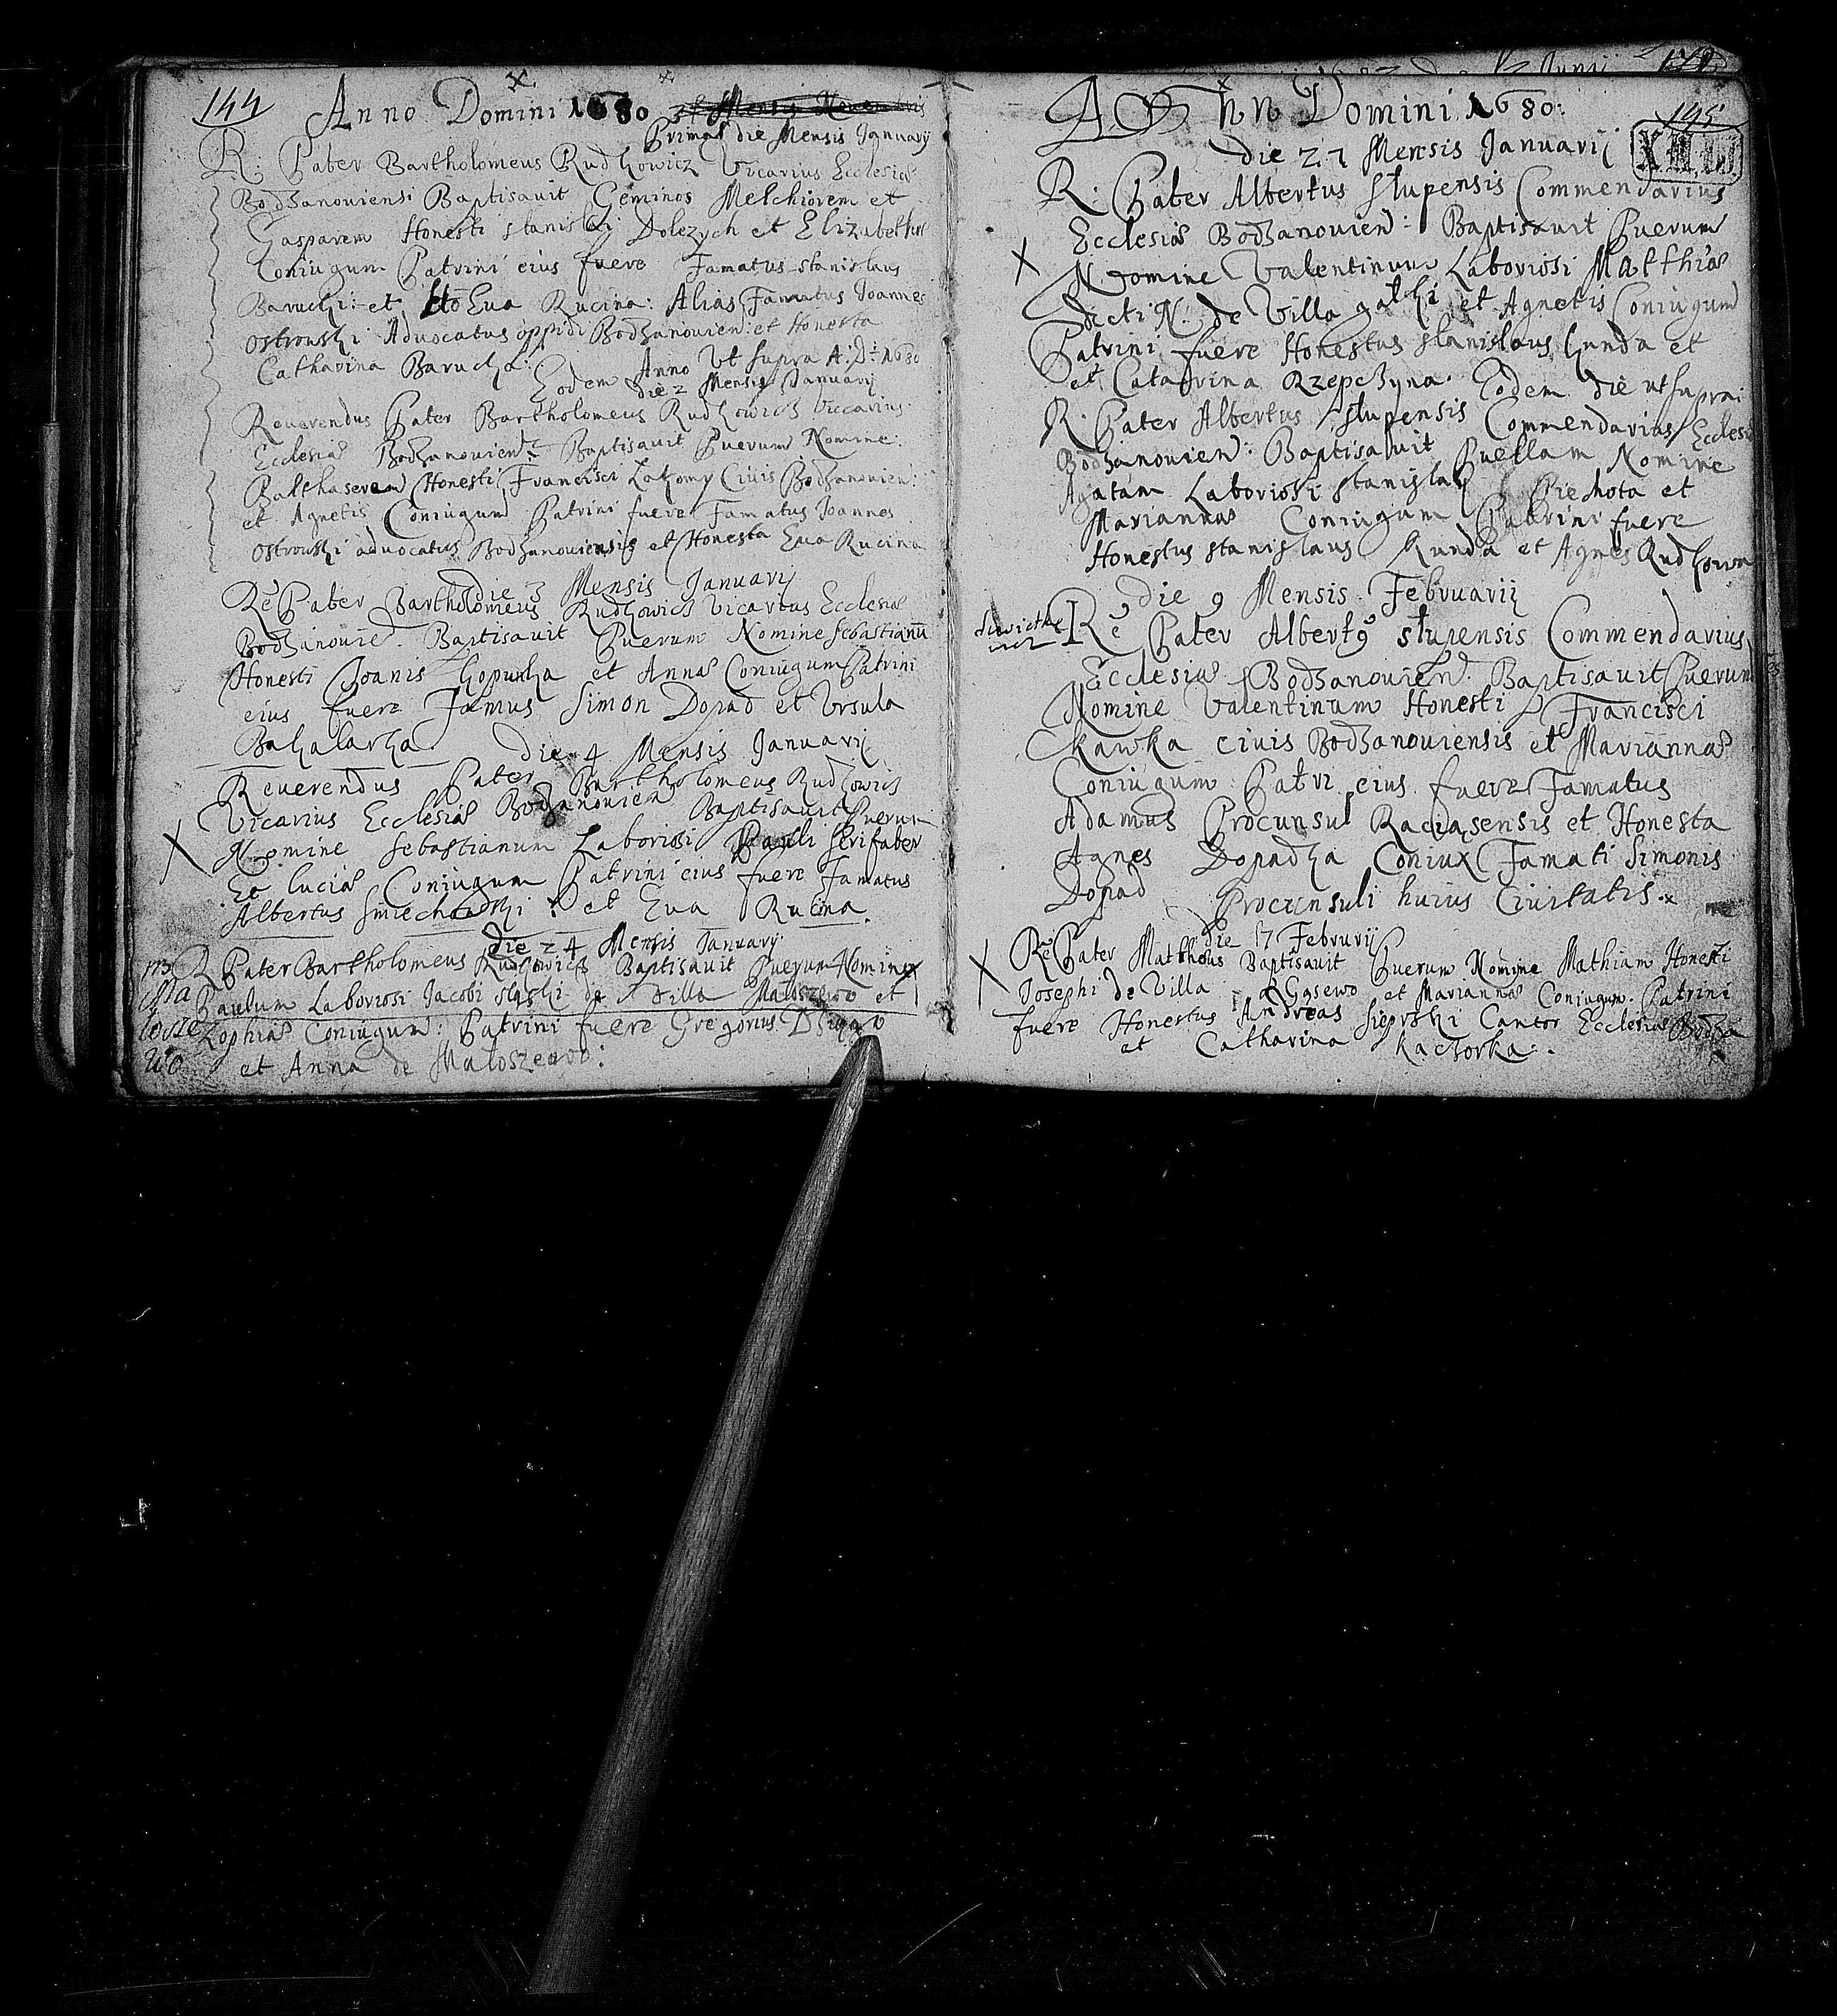 144 Anno Domini 1680
Prima die Mensis Januarij
R: Pater Bartholomeus Rudkowicz Vicarius Ecclesiæ
Bodzanouiensi Baptisauit Geminos Melchiorem et
Gasparem Honesti Stanislai Dolezych et Elizabethæ
Coniugum Patrini eius fuere Famatus Stanislaus
Barucki: et Ho Eua Rucina: Alias Famatus Joannes
Ostrouski Aduocatus oppidi Bodzanouien: et Honesta
Catharina Barucka: Anno Vt supra A: D: 1680
Eodem die 2 Mensis Januarij
Reuerendus Pater Bartholomeus Rudkowicz Viccarius
Ecclesiæ Bodzanouien: Baptisauit Puerum Nomine:
Balthaserem Honesti Francisci Lakomy Ciuis Bodzanouien:
et Agnetis Coniugum Patrini fuere Famatus Joannes
Ostrouski aduocatus Bodzanouiensis et Honesta Eua Rucina
die 3 Mensis Januarij
Re Pater Bartholomeus Rudkowicz Vicarius Ecclesiæ
Bodzanouie. Baptisauit Puerum Nomine Sebastianū
Honesti Joanis Kopuska et Annæ Coniugum Patrini
eius fuere Famus Simon Dopad et Vrsula
Bakalarka. die 4 Mensis Januarij
Reuerendus Pater Bartholomeus Rudkowicz
Vicarius Ecclesiæ Bodzanouien Baptisauit Puerum
X Nomine Sebastianum Laboriosi Pauli ferifaber
Et Luciæ Coniugum Patrini eius fuere Famatus
Albertus Smiechowski: et Eua Rucina.
die 24 Mensis Januarij
R Pater Bartholomeus Rudkowicz Baptisauit Puerum Nomine
Paulum Laboriosi Jacobi de Villa Maloszewo et
Zophiæ Coniugum: Patrini fuere Gregorius
et Anna de Maloszewo:
Anno Domini 1680:
145
die 21 Mensis Januarij
R: Pater Albertus Slupensis Commendarius
Ecclesiæ Bodzanouien: Baptisauit Puerum
X Nomine Valentinum Laboriosi Matthiæ
dicti N. de Villa et Agnetis Coniugum
Patrini fuere Honestus Stanislaus Kunda et
et Catarina Rzepczyna. Eodem die ut suprai
R. Pater Albertus Slupensis Commendarius Ecclesiæ
Bodzanouien: Baptisauit Puellam Nomine
Agatam Laboriosi Stanislai Piechota et
Mariannæ Coniugum Patrini fuere
Honestus Stanislaus Kunda et Agnes Rudkowa
die 9 Mensis Februarij
Re Pater Albertus Slupensis Commendarius
Ecclesiæ Bodzanouien. Baptisauit Puerum
Nomine Valentinum Honesti Francisci
Kawka ciuis Bodzanouiensis et Mariannæ
Coniugum Patri eius fuere Famatus
Adamus Procunsul Raciąsensis et Honesta
Agnes Dopadka Coniux Famati Simonis
Dopad Procunsuli huius Ciuitatis.
die 17 Februarij
X Re Pater Matthæus Baptisauit Puerum Nomine Mathiam Honesti
Josephi de Villa Gąsewo et Mariannæ Coniugum. Patrini
fuere Honestus Andreas Sieprski Cantor Ecclesiæ Bodza
et Catharina Kaczorka:.